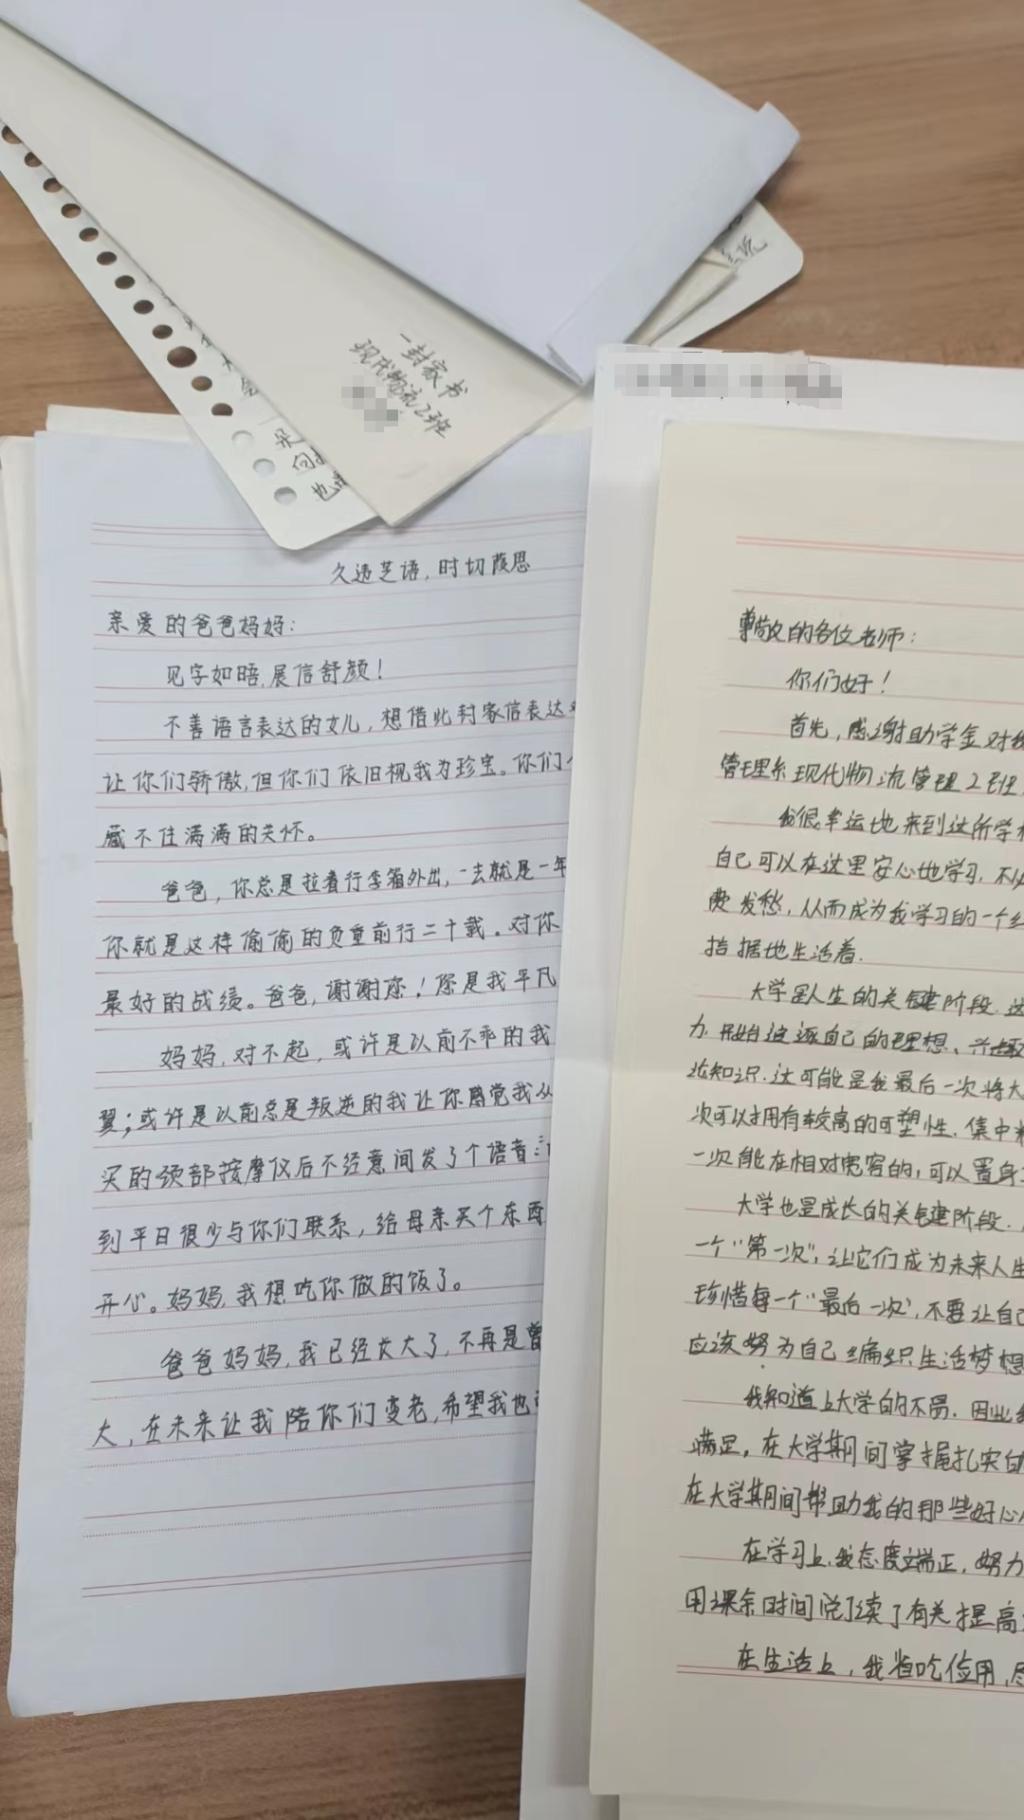 一封家书
现代物流2班
久违芝语,时切葭思
亲爱的爸爸妈妈:
见字如晤,展信舒颜!
不善语言表达的女儿,想借此封家信表达
让你们骄傲,但你们依旧视我为珍宝。你们
藏不住满满的关怀。
爸爸,你总是拉着行李箱外出,一去就是一年
你就是这样偷偷的负重前行二十载。对你
最好的战绩。爸爸,谢谢您!您是我平凡
妈妈,对不起,或许是以前不乖的我
翼;或许是以前总是叛逆的我让你感觉我从
买的颈部按摩仪后不经意间发了个语音
到平日很少与你们联系,给母亲买个东西
开心。妈妈,我想吃你做的饭了。
爸爸妈妈,我已经长大了,不再是曾
大,在未来让我陪你们变老,希望我也
尊敬的各位老师:
你们好!
首先,感谢助学金对
管理系现代物流管理2班
我很幸运地来到这所学校
自己可以在这里安心地学习,不必
费发愁,从而成为我学习的一个
拮据地生活着.
大学是人生的关键阶段.这
力.开始追逐自己的理想、兴趣
论知识.这可能是我最后一次将大
次可以拥有较高的可塑性.集中精
一次能在相对宽容的,可以置身
大学也是成长的关键阶段.
一个“第一次”,让它们成为未来人生
珍惜每一个“最后一次”,不要让自己
应该努为自己编织生活梦想
我知道上大学的不易.因此
满足,在大学期间掌握扎实
在大学期间帮助我的那些好心
在学习上,我态度端正,努力
用课余时间阅读了有关提高
在生活上,我省吃俭用,尽